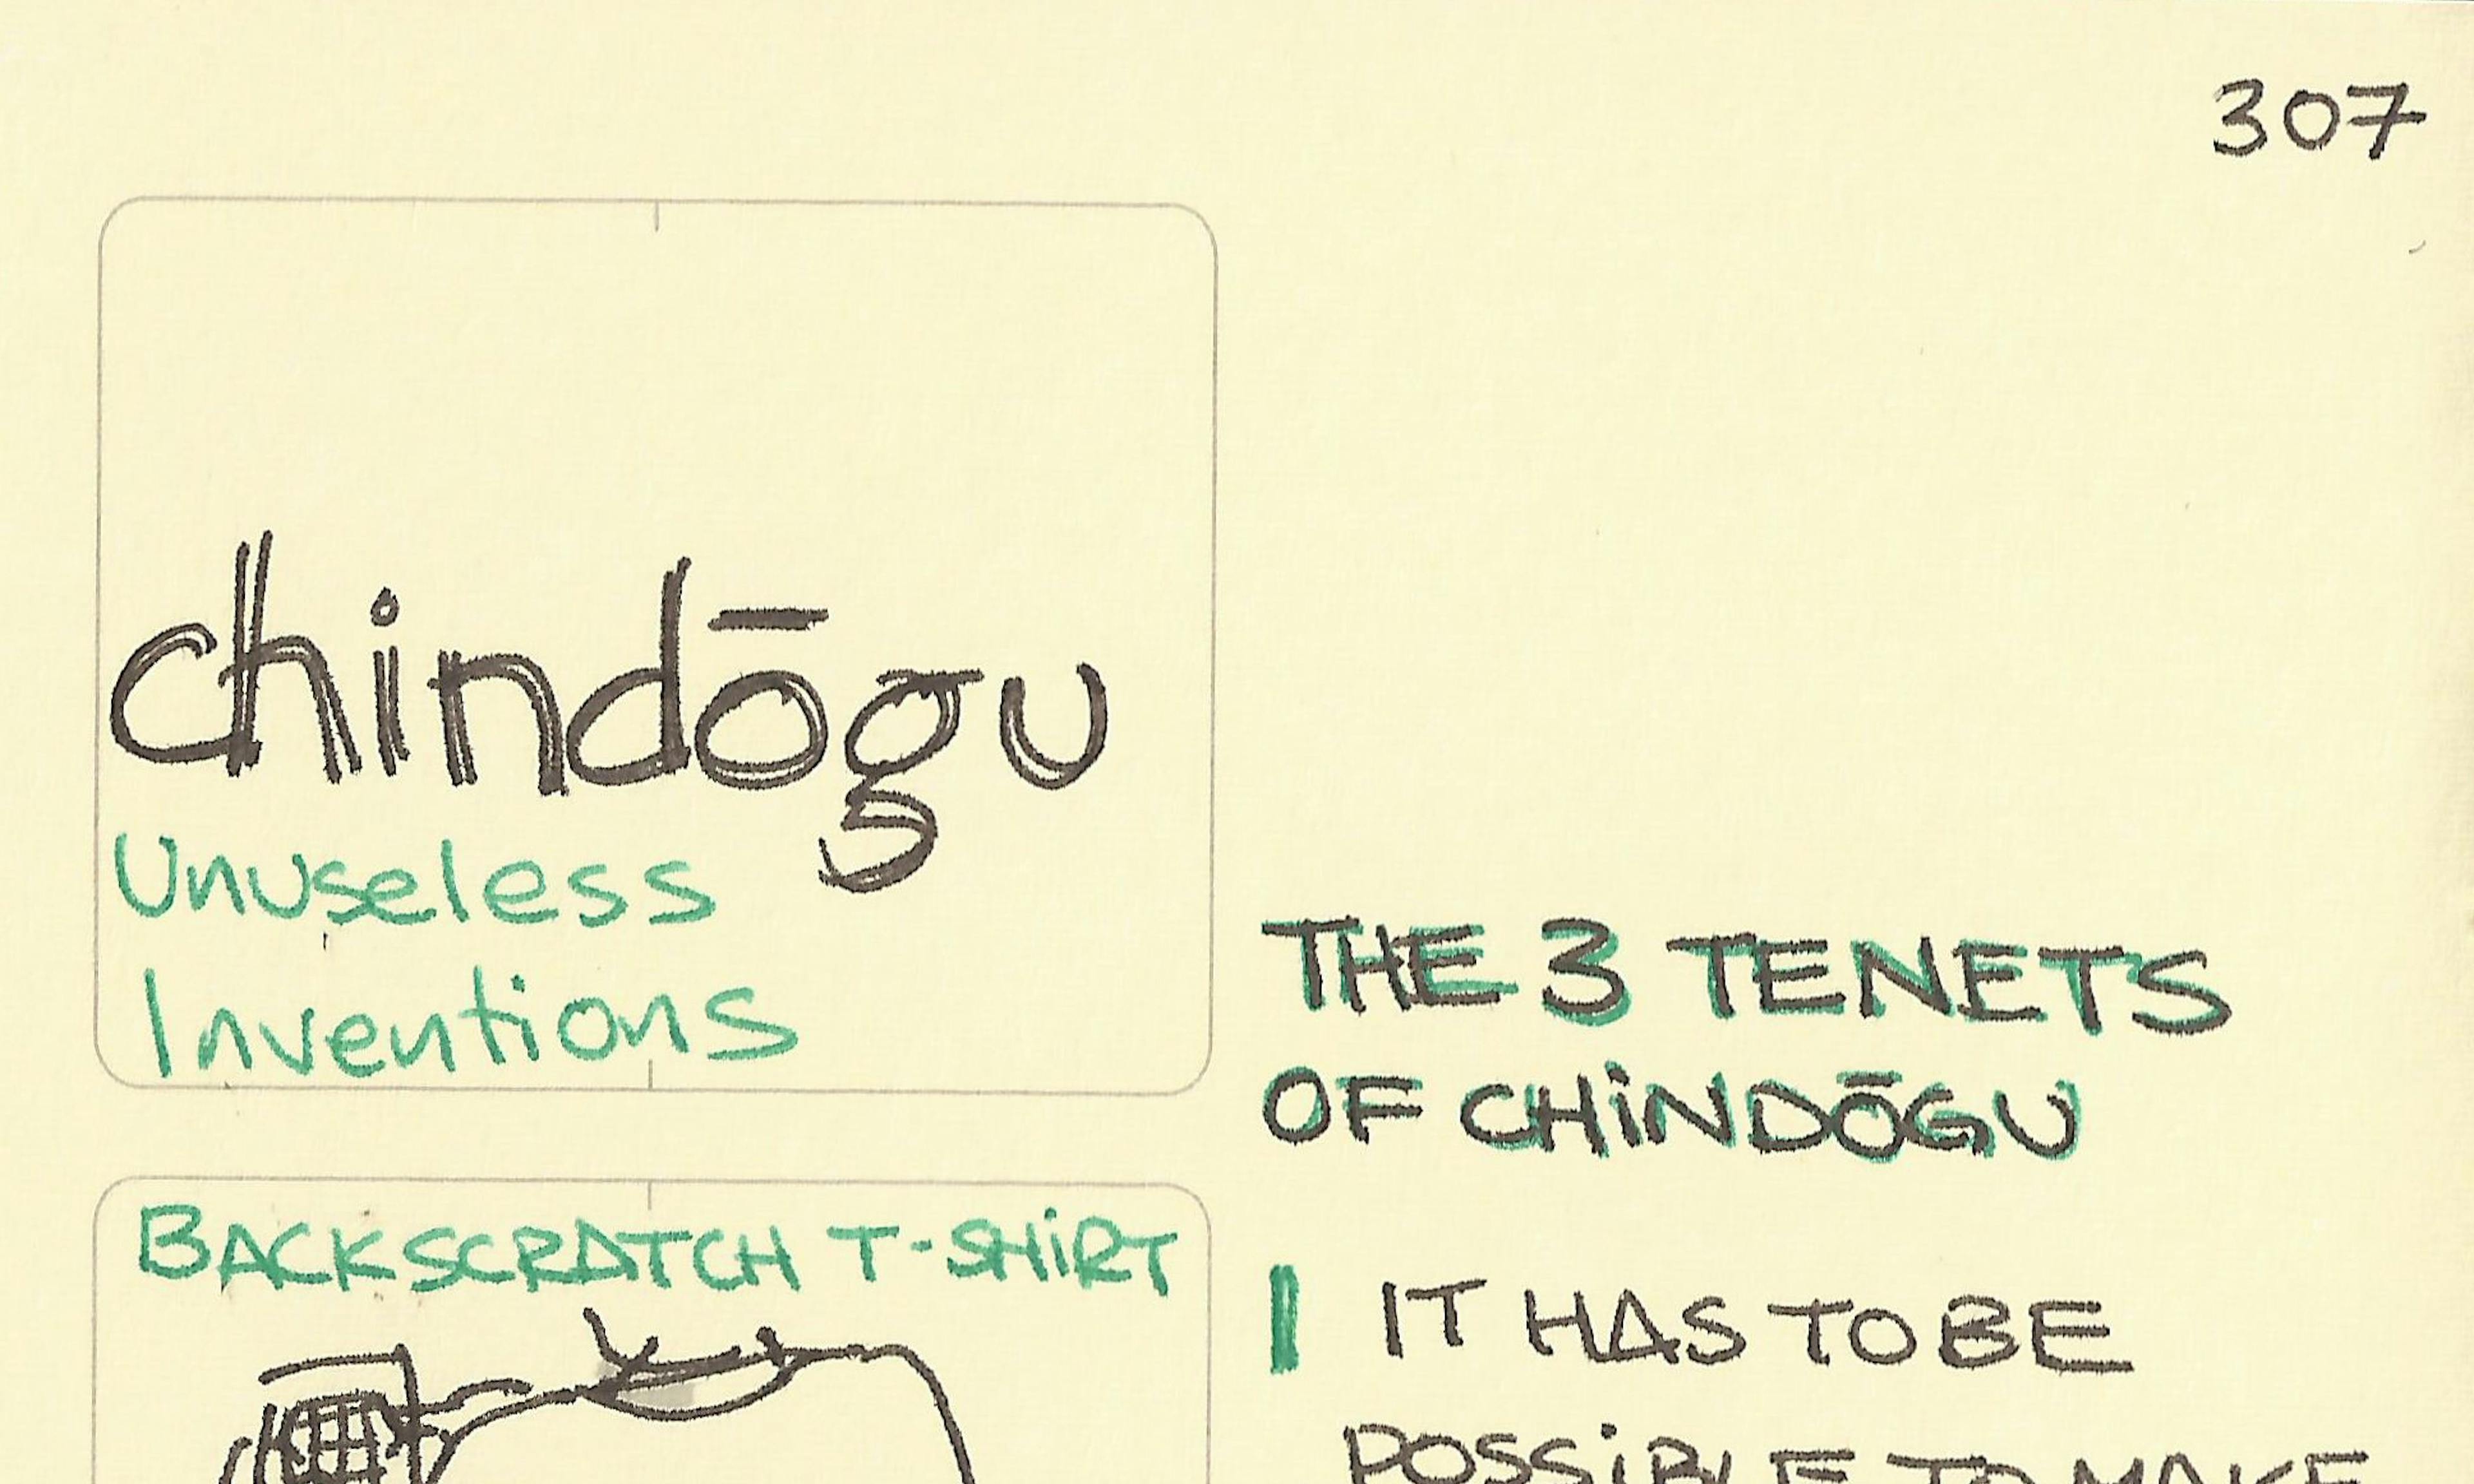 307
chindōgu
Unuseless
Inventions
THE 3 TENETS
OF CHiNDŌGU
BACKSCRATCH T-SHiRT
I IT HAS TO BE
POSSiBLE TO MAKE